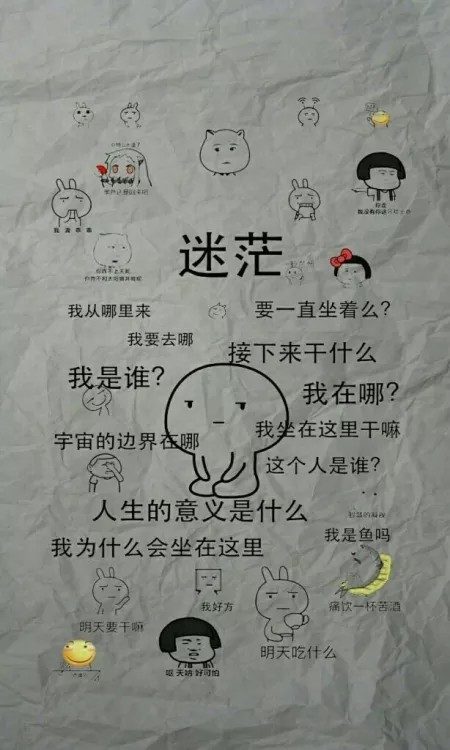 迷茫
我从哪里来
要一直坐着么?
我要去哪
接下来干什么
我是谁?
我在哪?
我坐在这里干嘛
宇宙的边界在哪
这个人是谁?
人生的意义是什么
我是鱼吗
我为什么会坐在这里
我好方
痛饮一杯苦酒
明天要干嘛
明天吃什么
哎 天呐 好可怕